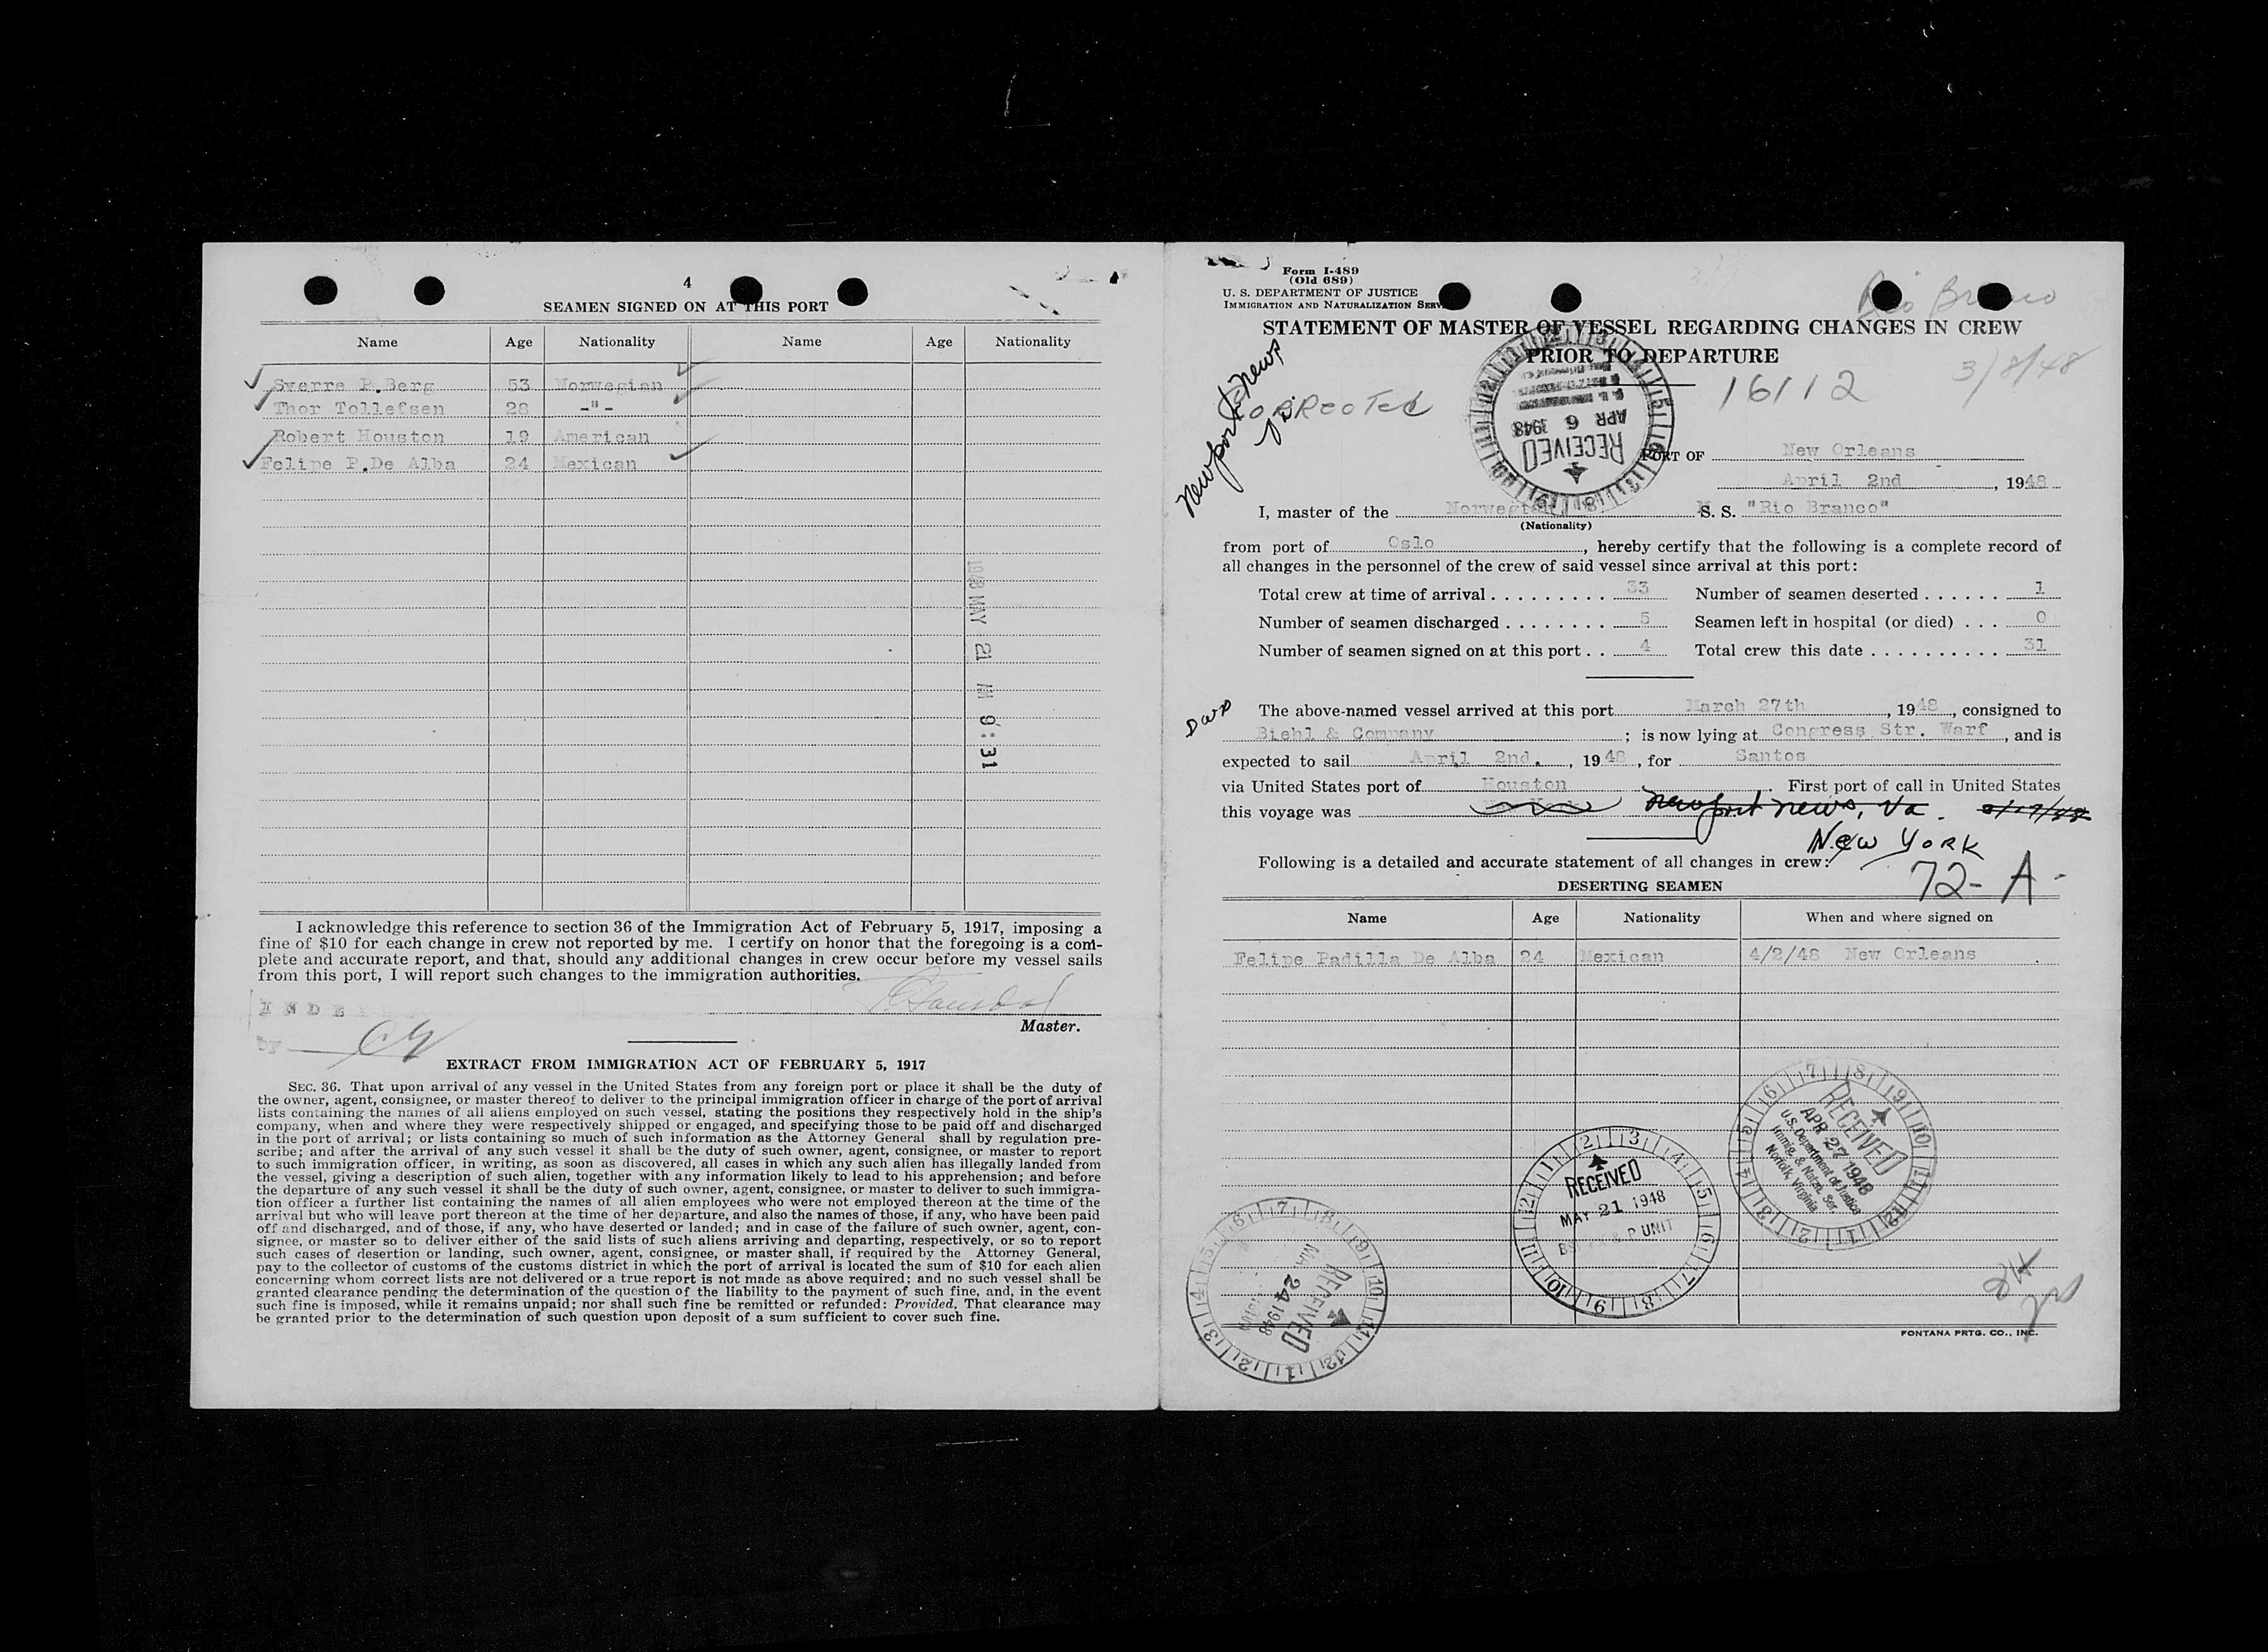 4
SEAMEN SIGNED ON AT THIS PORT
Name Age Nationality Name Age Nationality
Sverre P.Berg 53 Norwegian
Thor Tollefsen 28 -"-
Robert Houston 19 American
Felipe P.De Alba 24 Mexican
1948 MAY 21 AM 9:31
I acknowledge this reference to section 36 of the Immigration Act of February 5, 1917, imposing a
fine of $10 for each change in crew not reported by me. I certify on honor that the foregoing is a com-
plete and accurate report, and that, should any additional changes in crew occur before my vessel sails
from this port, I will report such changes to the immigration authorities.
Master.
by
EXTRACT FROM IMMIGRATION ACT OF FEBRUARY 5, 1917
SEC. 36. That upon arrival of any vessel in the United States from any foreign port or place it shall be the duty of
the owner, agent, consignee, or master thereof to deliver to the principal immigration officer in charge of the port of arrival
lists containing the names of all aliens employed on such vessel, stating the positions they respectively hold in the ship's
company, when and where they were respectively shipped or engaged, and specifying those to be paid off and discharged
in the port of arrival; or lists containing so much of such information as the Attorney General shall by regulation pre-
scribe; and after the arrival of any such vessel it shall be the duty of such owner, agent, consignee, or master to report
to such immigration officer, in writing, as soon as discovered, all cases in which any such alien has illegally landed from
the vessel, giving a description of such alien, together with any information likely to lead to his apprehension; and before
the departure of any such vessel it shall be the duty of such owner, agent, consignee, or master to deliver to such immigra-
tion officer a further list containing the names of all alien employees who were not employed thereon at the time of the
arrival but who will leave port thereon at the time of her departure, and also the names of those, if any, who have been paid
off and discharged, and of those, if any, who have deserted or landed; and in case of the failure of such owner, agent, con-
signee, or master so to deliver either of the said lists of such aliens arriving and departing, respectively, or so to report
such cases of desertion or landing, such owner, agent, consignee, or master shall, if required by the Attorney General,
pay to the collector of customs of the customs district in which the port of arrival is located the sum of $10 for each alien
concerning whom correct lists are not delivered or a true report is not made as above required; and no such vessel shall be
granted clearance pending the determination of the question of the liability to the payment of such fine, and, in the event
such fine is imposed, while it remains unpaid; nor shall such fine be remitted or refunded: Provided, That clearance may
be granted prior to the determination of such question upon deposit of a sum sufficient to cover such fine.
Form I-489
(Old 689)
U. S. DEPARTMENT OF JUSTICE
IMMIGRATION AND NATURALIZATION SERV
Rio Branco
STATEMENT OF MASTER OF VESSEL REGARDING CHANGES IN CREW
PRIOR TO DEPARTURE
3/8/48
16112
Newport News
CORRECTED
RECEIVED
APR 6 1948
PORT OF New Orleans
April 2nd, 1948
I, master of the Norwegian S. S. "Rio Branco"
(Nationality)
from port of Oslo, hereby certify that the following is a complete record of
all changes in the personnel of the crew of said vessel since arrival at this port:
Total crew at time of arrival 33 Number of seamen deserted 1
Number of seamen discharged 5 Seamen left in hospital (or died) 0
Number of seamen signed on at this port 4 Total crew this date 31
The above-named vessel arrived at this port March 27th, 1948, consigned to
Biehl & Company; is now lying at Congress Str. Warf, and is
expected to sail April 2nd., 1948, for Santos
via United States port of Houston. First port of call in United States
this voyage was New York Newport News, Va.
New York
Following is a detailed and accurate statement of all changes in crew:
72-A-
DESERTING SEAMEN
Name Age Nationality When and where signed on
Felipe Padilla De Alba 24 Mexican 4/2/48 New Orleans
RECEIVED
APR 27 1948
U.S. Department of Justice
Immig. & Natzn. Ser.
Norfolk, Virginia
RECEIVED
MAY 21 1948
UNIT
RECEIVED
24 1948
FONTANA PRTG. CO., INC.